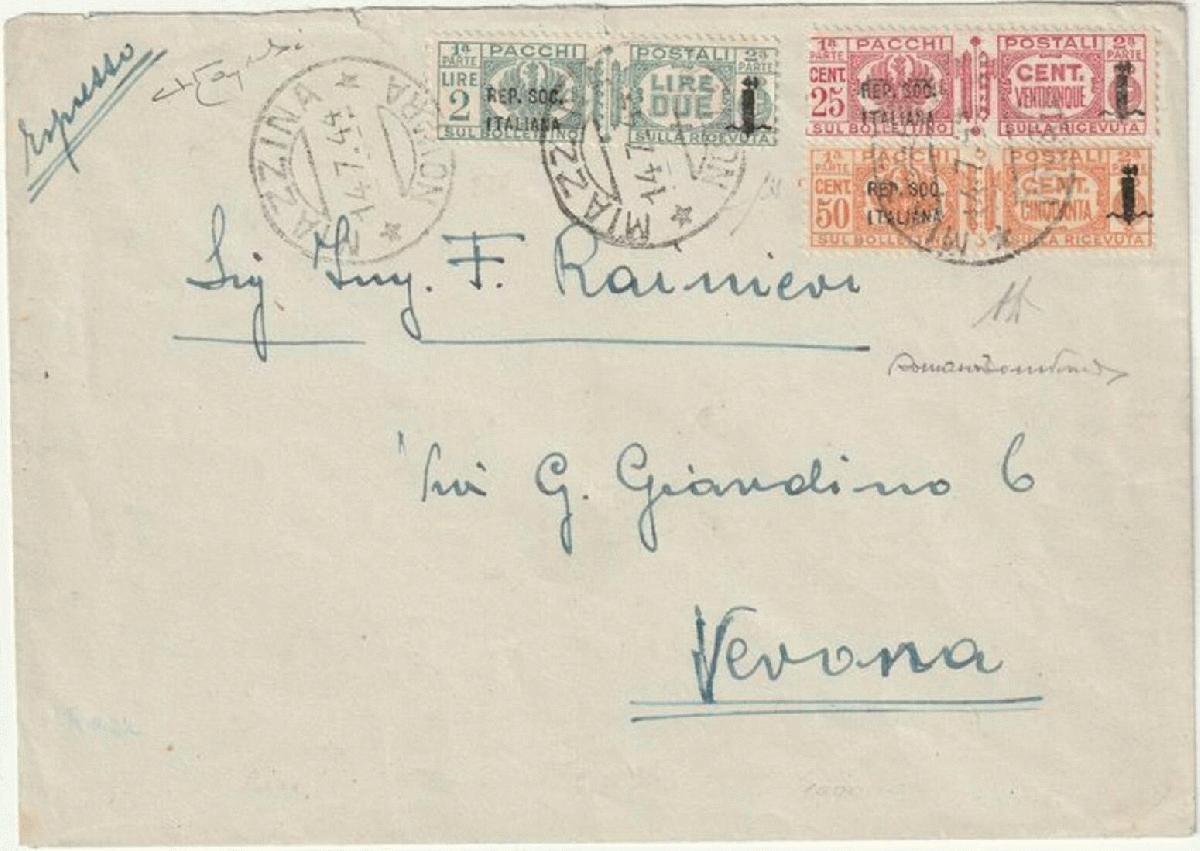 Espresso
1ª PARTE PACCHI POSTALI 2ª PARTE
LIRE 2 LIRE DUE
REP. SOC. ITALIANA
SUL BOLLETTINO SULLA RICEVUTA
1ª PARTE PACCHI POSTALI 2ª PARTE
CENT. 25 CENT. VENTICINQUE
REP. SOC. ITALIANA
SUL BOLLETTINO SULLA RICEVUTA
1ª PARTE PACCHI POSTALI 2ª
CENT. 50 CENT. CINQUANTA
REP. SOC. ITALIANA
SUL BOLLETTINO SULLA RICEVUTA
MIAZZINA
14.7.44
MIAZZINA
14.7
Sig Ing. F. Rainieri
Via G. Giardino 6
Verona